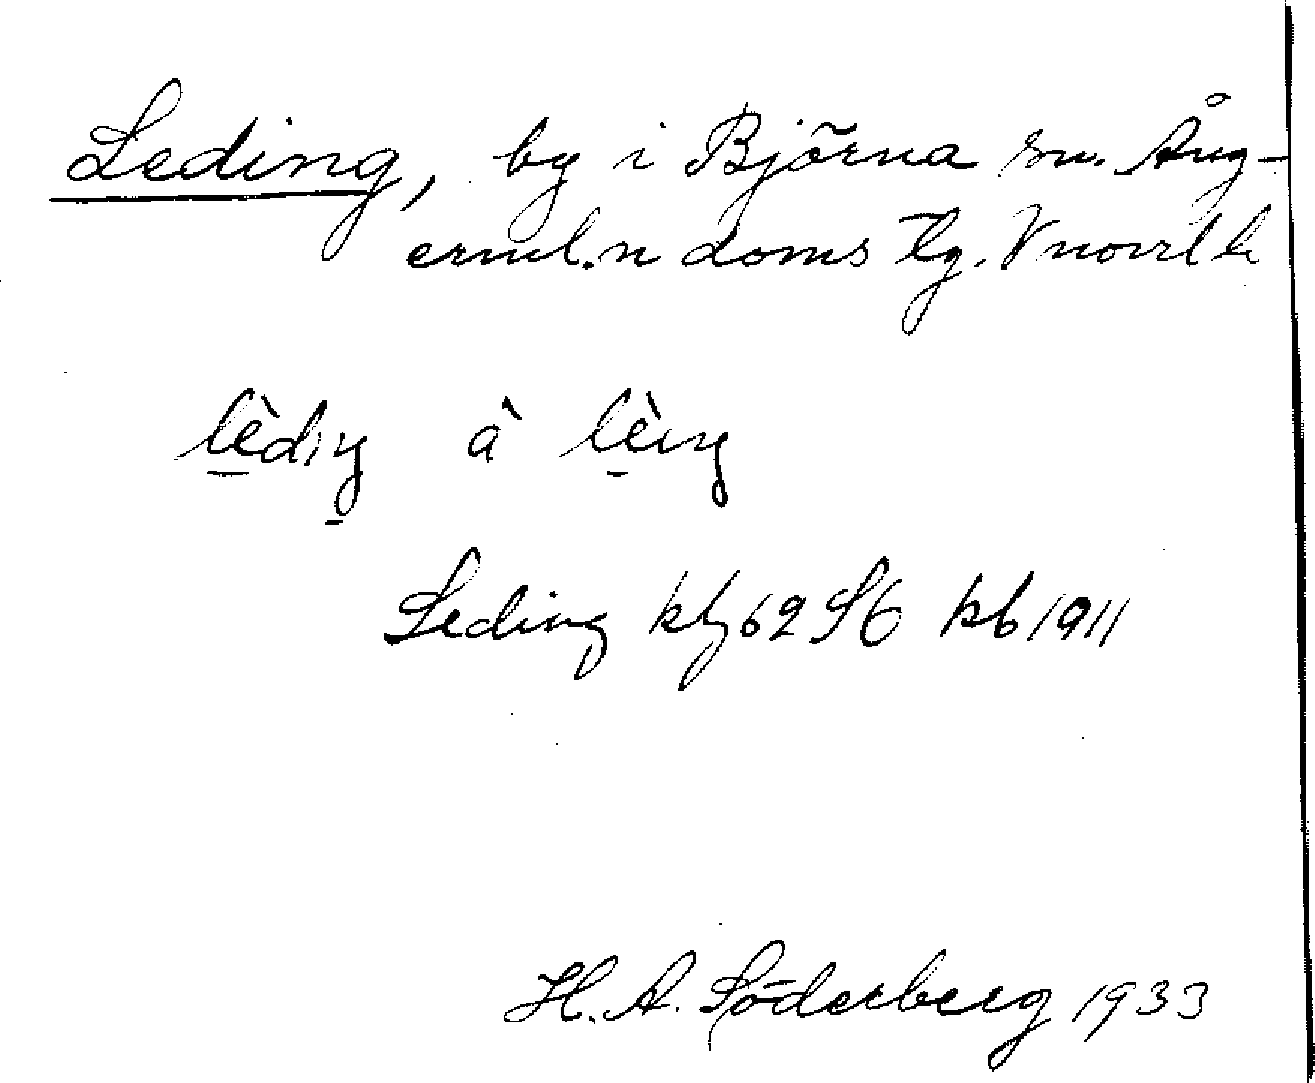 Leding, by i Björna sn. Ång-
erml.n doms tg. Vnorrl l.
lèdıŋ å lèıŋ
Leding kbl 62 S6 kb 1911
H. A. Söderberg 1933